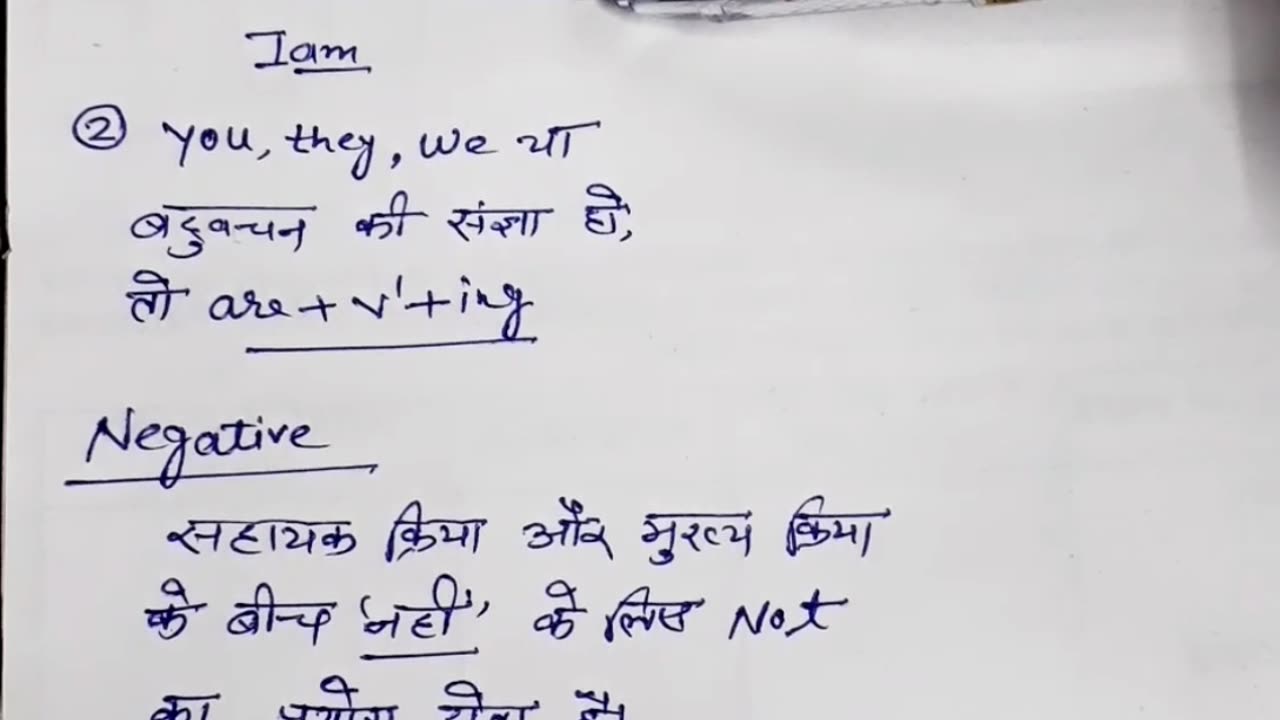 I am
② You, they, we या
बहुवचन की संज्ञा हो,
तो are + v¹ + ing
Negative
सहायक क्रिया और मुख्य क्रिया
के बीच 'नहीं' के लिए Not
का प्रयोग होता है